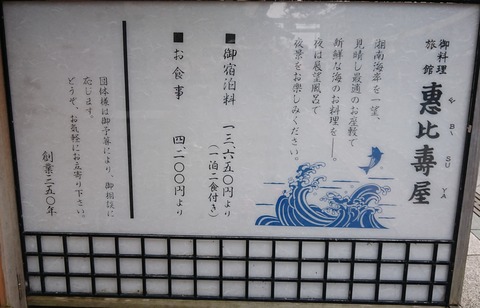 御料理
旅館
惠比壽屋
YE BI SU YA
湘南海岸を一望、
見晴し最適のお座敷で
新鮮な海のお料理を――。
夜は展望風呂で
夜景をお楽しみください。
■御宿泊料 一三、六五〇円より
(一泊二食付き)
■お食事 四、二〇〇円より
団体様は御予算により、御相談に
応じます。
どうぞ、お気軽にお立寄り下さい。
創業二五〇年